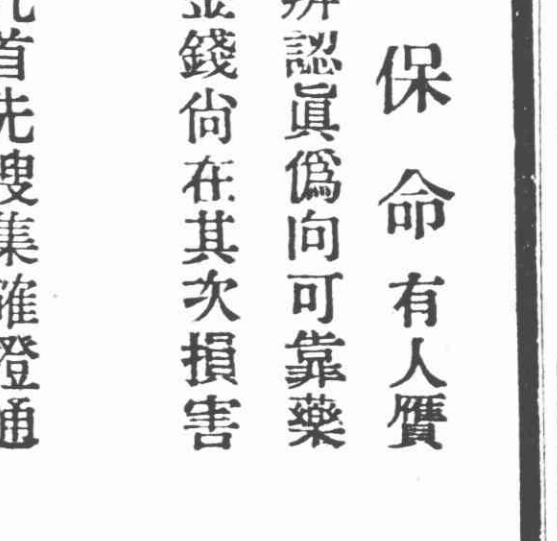 保命有人贋
辨認眞僞向可靠藥
金錢尙在其次損害
首先搜集確證通